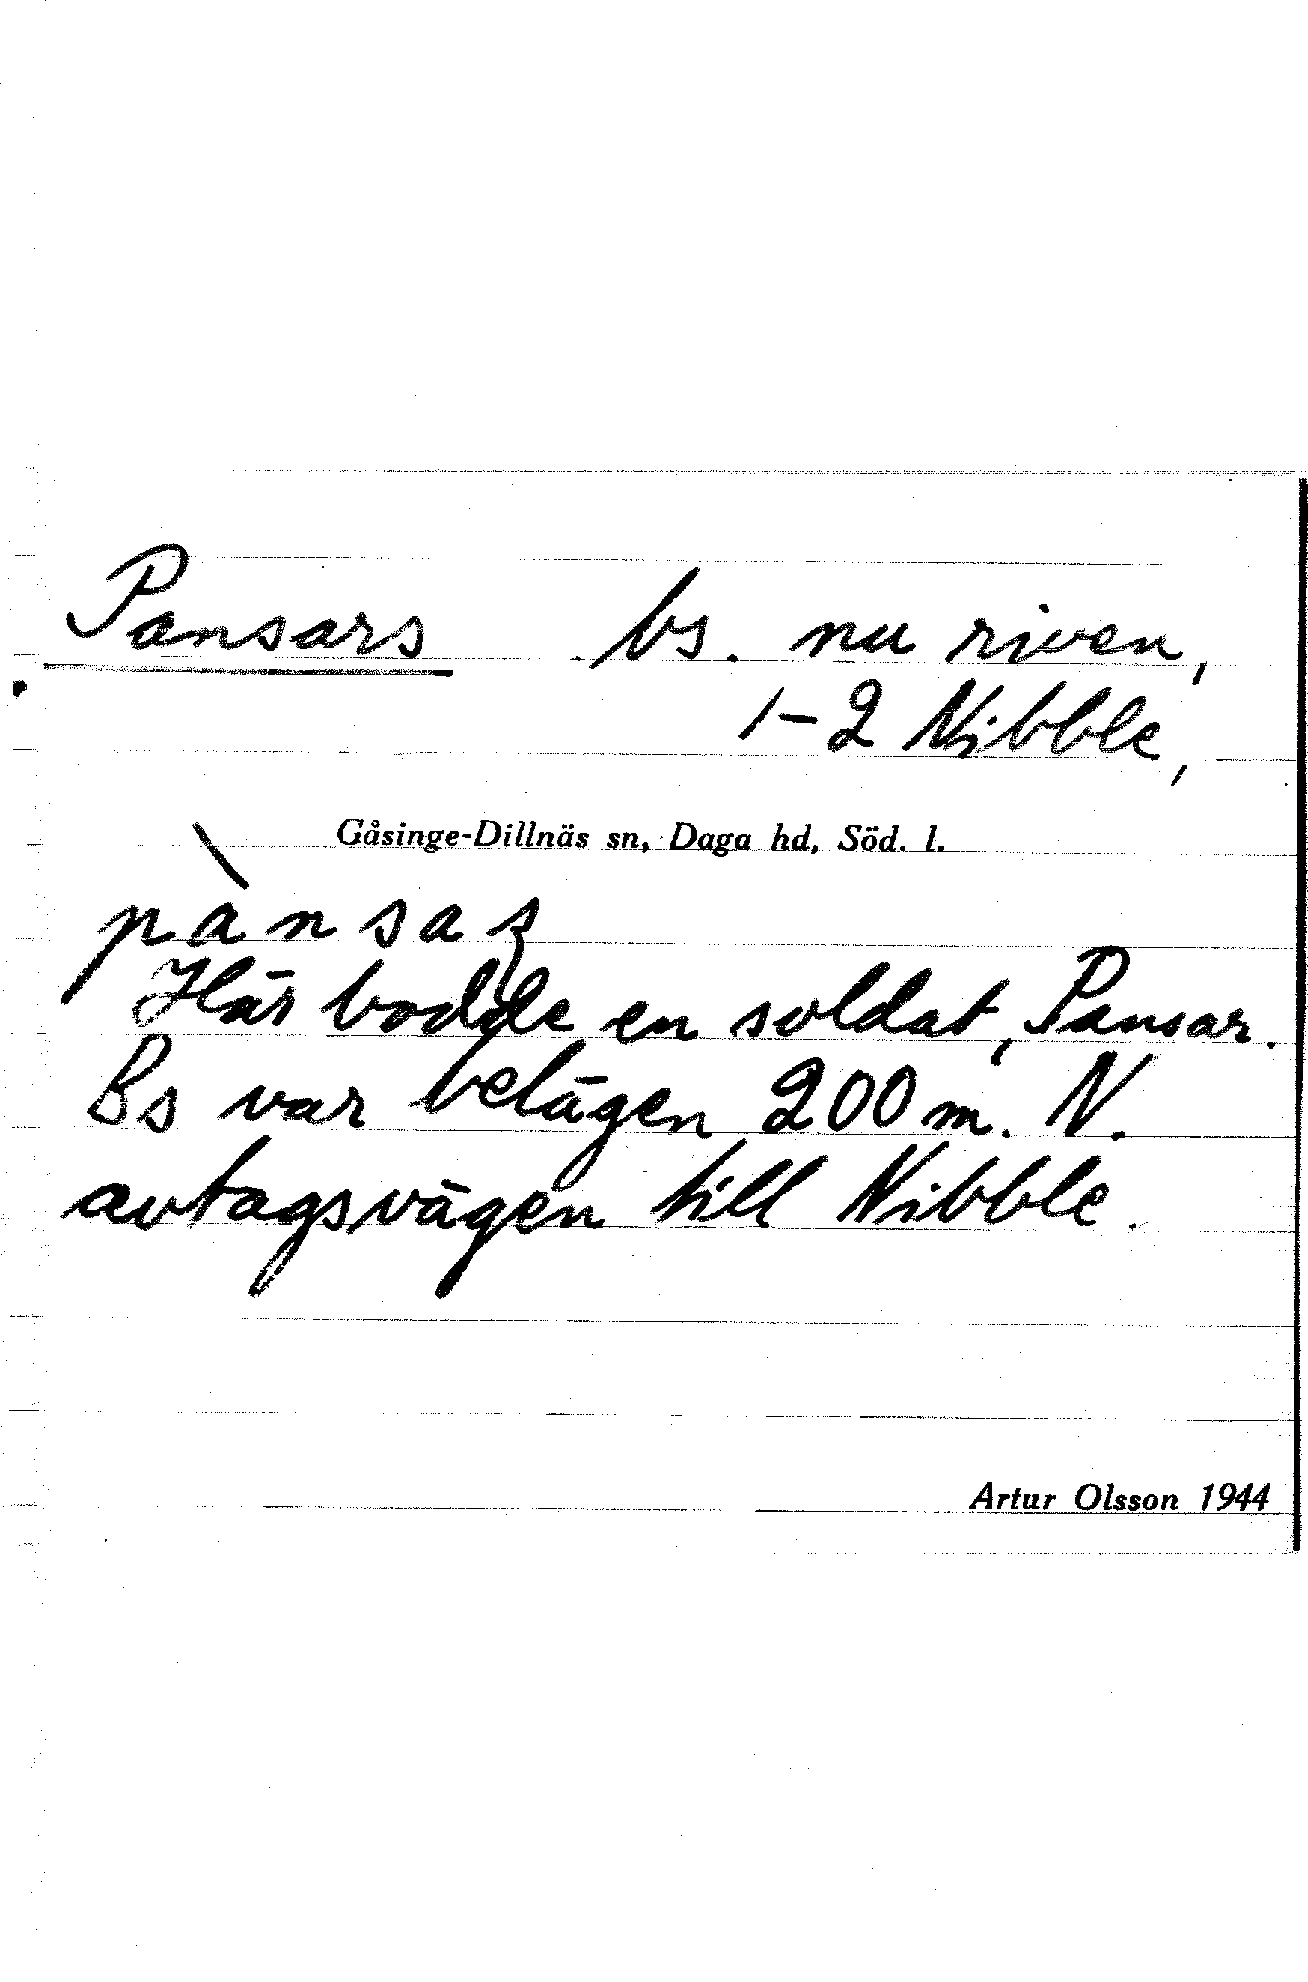 Pansars bs. nu riven,
1-2 Nibble,
Gåsinge-Dillnäs sn, Daga hd, Söd. l.
pànsaʂ
Här bodde en soldat, Pansar.
Bs var belägen 200 m. N.
avtagsvägen till Nibble.
Artur Olsson 1944